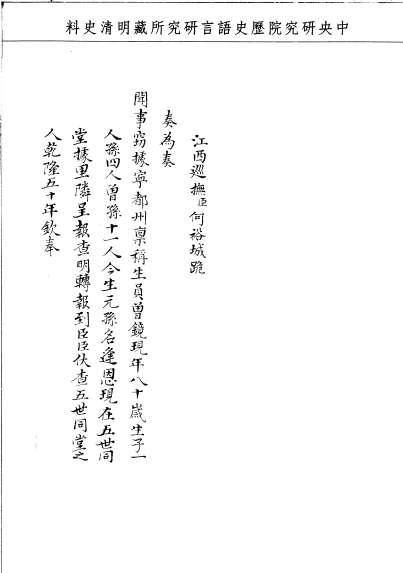 中央研究院歷史語言研究所藏明清史料
江西巡撫臣何裕城跪
奏為奏
聞事窃據寧都州稟稱生員曾鏡現年八十歲生子一
人孫四人曾孫十一人今生元孫名逢恩現在五世同
堂據里隣呈報查明轉報到臣臣伏查五世同堂之
人乾隆五十年欽奉